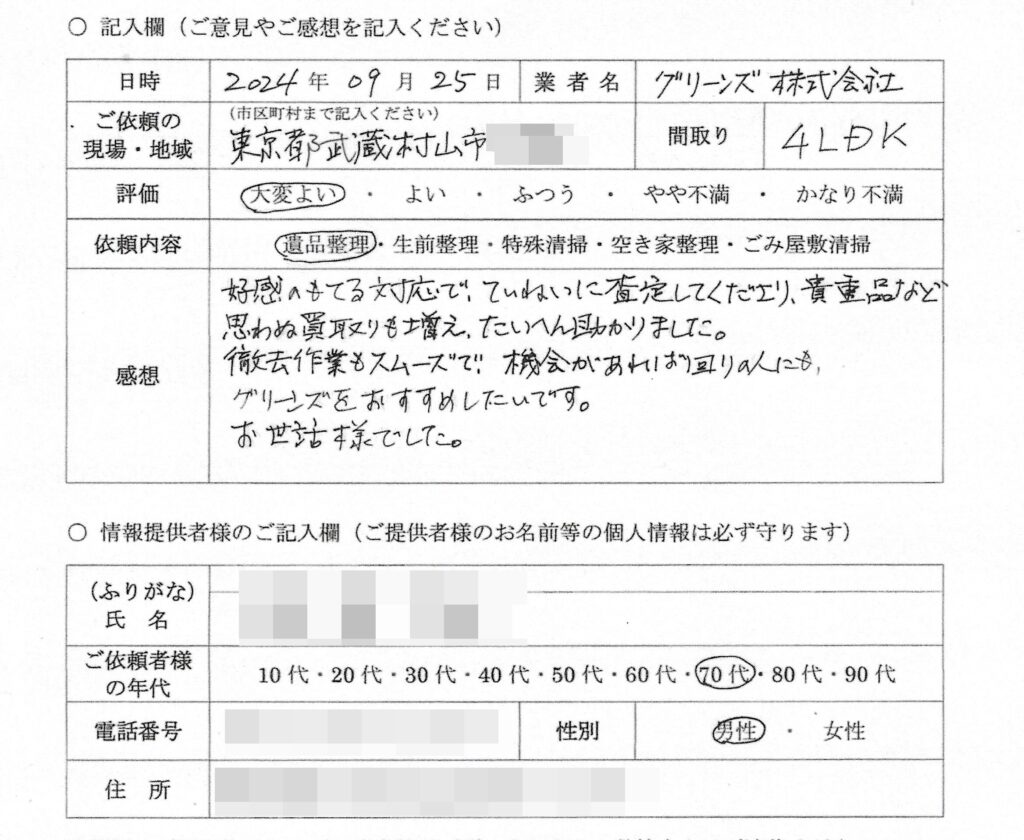 ○ 記入欄（ご意見やご感想を記入ください）
日時 2024 年 09 月 25 日 業者名 グリーンズ 株式会社
ご依頼の現場・地域 （市区町村まで記入ください） 東京都武蔵村山市 間取り 4LDK
評価 大変よい ・ よい ・ ふつう ・ やや不満 ・ かなり不満
依頼内容 遺品整理・生前整理・特殊清掃・空き家整理・ごみ屋敷清掃
感想
好感のもてる対応で、ていねいに査定してくださり、貴重品など
思わぬ買取りも増え、たいへん助かりました。
撤去作業もスムーズで、機会があれば回りの人にも、
グリーンズをおすすめしたいです。
お世話様でした。
○ 情報提供者様のご記入欄（ご提供者様のお名前等の個人情報は必ず守ります）
（ふりがな）
氏 名
ご依頼者様の年代 10代・20代・30代・40代・50代・60代・70代・80代・90代
電話番号 性別 男性 ・ 女性
住 所